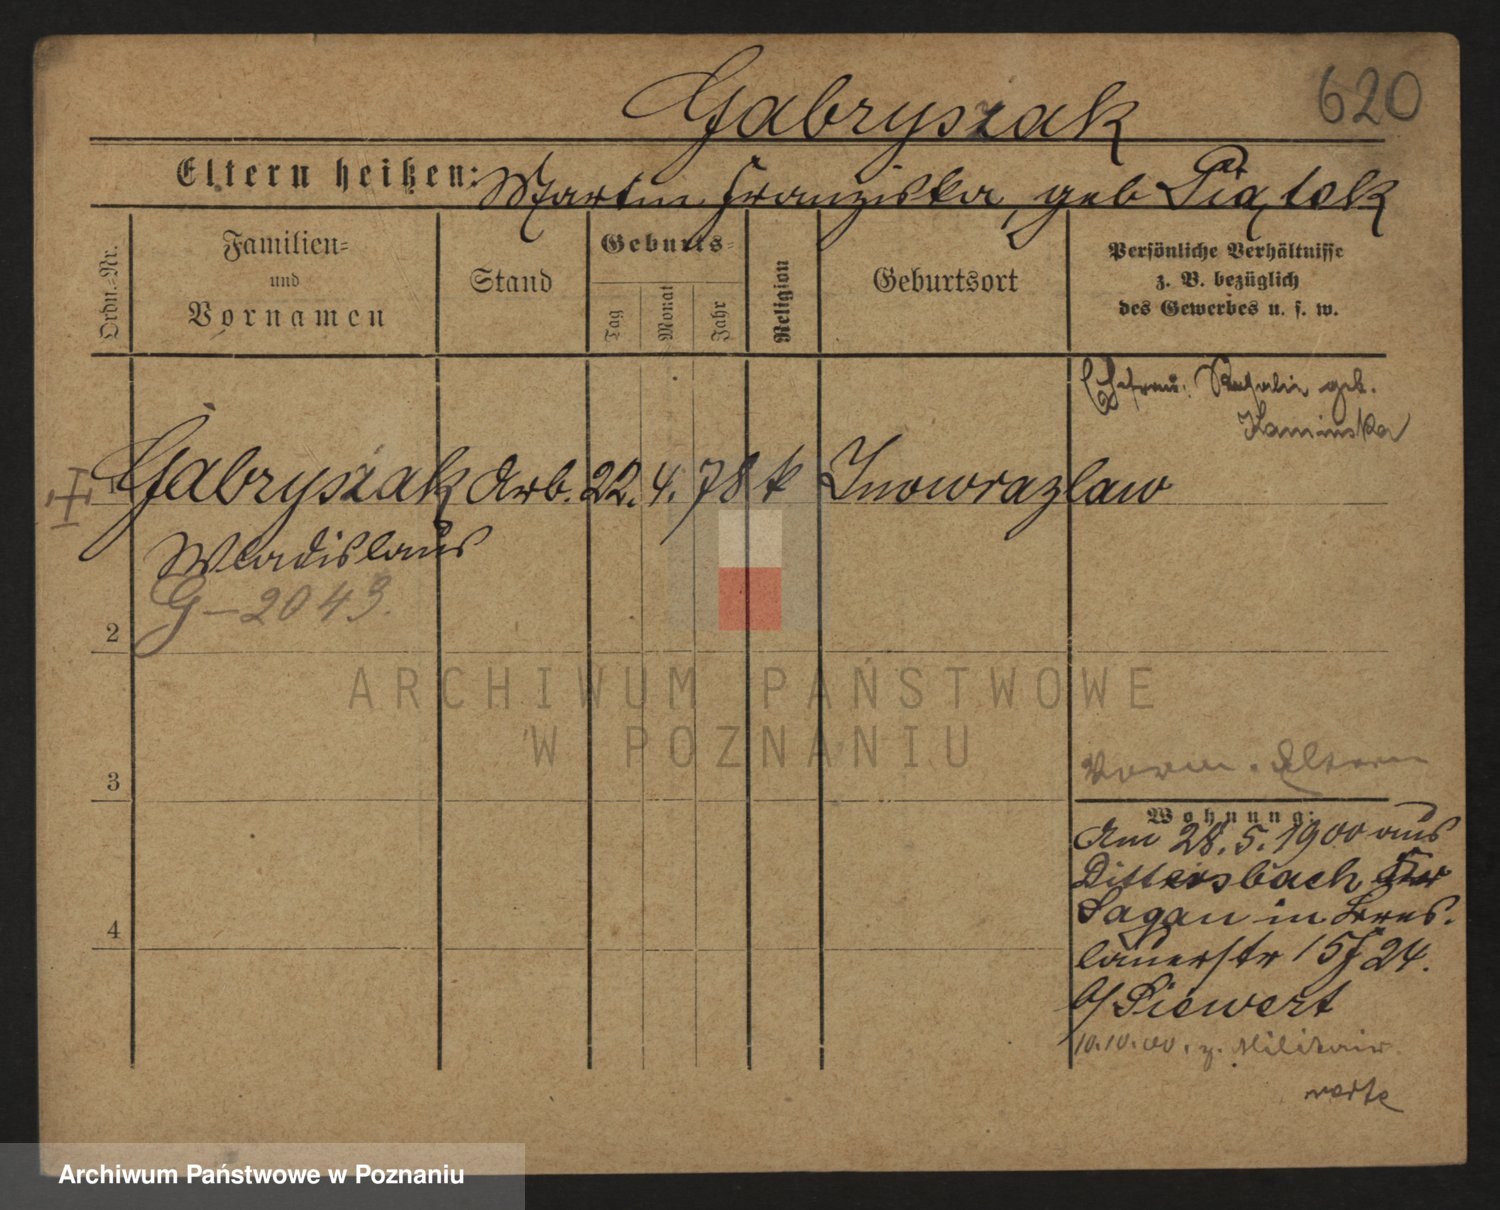 Gabryszak
620
Eltern heißen: Martin, Franziska, geb Piątek
Ordn.-Nr.
Familien-
und
Vornamen
Stand
Geburts-
Tag
Monat
Jahr
Religion
Geburtsort
Persönliche Verhältnisse
z. B. bezüglich
des Gewerbes u. s. w.
Ehefrau: Rosalie geb.
Kaminska
Gabryszak Arb. 22. 4. 78 k Inowrazlaw
Wladislaus
G-2043.
2
ARCHIWUM PAŃSTWOWE
W POZNANIU
3
4
Wohnung:
Am 28.5.1900 aus
Dittersbach
Sagan in Bres-
lauerstr 15 J 24.
b/ Siewert
10.10.00. z. Militair.
Archiwum Państwowe w Poznaniu